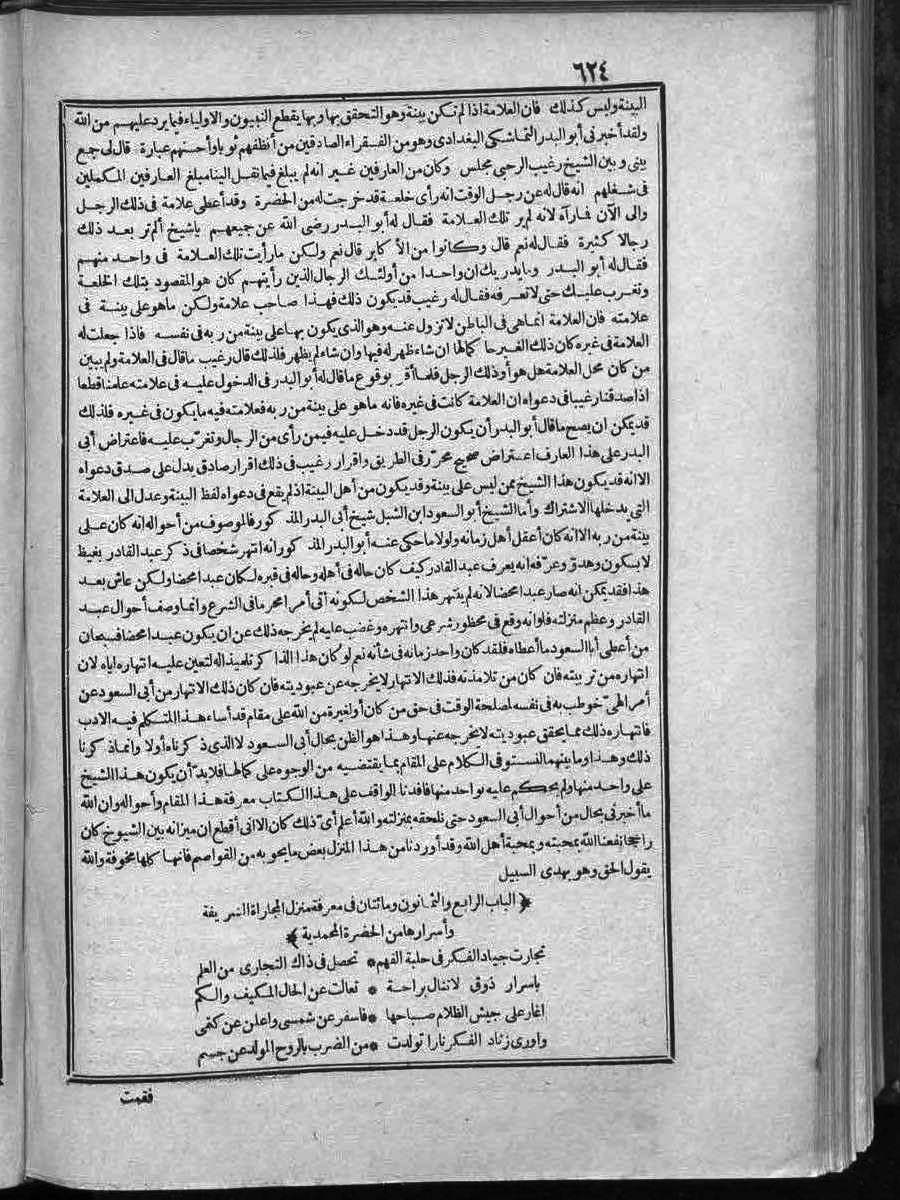 ٦٢٤
البينة وليس كذلك فان العلامة اذا لم تكن بينة وهو التحقق بها وبها يقطع النبيون والاولياء فيما يرد عليهم من الله
ولقد أخبرني أبو البدر التماشكي البغدادي وهو من الفقراء الصادقين من أنظفهم ثوبا وأحسنهم عبارة قال لي جمع
بيني وبين الشيخ رغيب الرحبي مجلس وكان من العارفين غير انه لم يبلغ فيما نقل الينا مبلغ العارفين المكملين
في شغلهم انه قال له عن رجل الوقت انه رأى خلعة قد خرجت له من الحضرة وقد أعطى علامة في ذلك الرجل
والى الآن فما رآه لانه لم ير تلك العلامة فقال له أبو البدر رضي الله عن جميعهم ياشيخ ألم تر بعد ذلك
رجالا كثيرة فقال له نعم قال وكانوا من الاكابر قال نعم ولكن ما رأيت تلك العلامة في واحد منهم
فقال له أبو البدر وما يدريك ان واحدا من أولئك الرجال الذين رأيتهم كان هو المقصود بتلك الخلعة
وتغرب عليك حتى لا تعرفه فقال له رغيب قد يكون ذلك فهذا صاحب علامة ولكن ماهو على بينة في
علامته فان العلامة انما هي في الباطن لا تزول عنه وهو الذي يكون بها على بينة من ربه في نفسه فاذا جعلت له
العلامة في غيره كان ذلك الغير حاكما لها ان شاء ظهر له فيها وان شاء لم يظهر فلذلك قال رغيب ما قال في العلامة ولم يبين
من كان محل العلامة هل هو أو ذلك الرجل فلما أقر بوقوع ما قال له أبو البدر في الدخول عليه في علامته علمنا قطعا
اذا صدقنا رغيبا في دعواه ان العلامة كانت في غيره فانه ماهو على بينة من ربه فعلامته فيه ما يكون في غيره فلذلك
قد يمكن ان يصح ما قال أبو البدر أن يكون الرجل قد دخل عليه فيمن رأى من الرجال وتغرب عليه فاعتراض أبي
البدر على هذا العارف اعتراض صحيح محرر في الطريق واقرار رغيب في ذلك اقرار صادق يدل على صدق دعواه
الا انه قد يكون هذا الشيخ ممن ليس على بينة وقد يكون من أهل البينة اذ لم يقع في دعواه لفظ البينة وعدل الى العلامة
التي يدخلها الاشتراك وأما الشيخ أبو السعود ابن الشبل شيخ أبي البدر المذكور فالموصوف من أحواله انه كان على
بينة من ربه الا انه كان أعقل أهل زمانه ولولا ما حكى عنه أبو البدر المذكور انه انتهر شخصا في ذكر عبد القادر بغيظ
لا بسكون وهدوّ وعرّفه انه يعرف عبد القادر كيف كان حاله في أهله وحاله في قبره لكان عبدا محضا ولكن عاش بعد
هذا فقد يمكن انه صار عبدا محضا لانه لم ينتهر هذا الشخص لكونه أتى أمرا محرما في الشرع وانما وصف أحوال عبد
القادر وعظم منزلته فلو انه وقع في محظور شرعي وانتهره وغضب عليه لم يخرجه ذلك عن ان يكون عبدا محضا فسبحان
من أعطى أبا السعود ما أعطاه فلقد كان واحد زمانه في شأنه نعم لو كان هذا الذاكر تلميذا له لتعين عليه انتهاره اياه لان
انتهاره من تربيته فان كان من تلامذته فذلك الانتهار لا يخرجه عن عبوديته فان كان ذلك الانتهار من أبي السعود عن
أمر الهيّ خوطب به في نفسه لمصلحة الوقت في حق من كان أو لغيرة من الله على مقام قد أساء هذا المتكلم فيه الادب
فانتهاره ذلك مما يحقق عبوديته لا يخرجه عنها وهذا هو الظن بحال أبي السعود لا الذي ذكرناه أولا وانما ذكرنا
ذلك وهذا وما بينهما لنستوفي الكلام على المقام بما يقتضيه من الوجوه على كمالها فلا بد أن يكون هذا الشيخ
على واحد منها ولم يحكم عليه بواحد منها فافدنا الواقف على هذا الكتاب معرفة هذا المقام وأحواله وان الله
ما أخبرني بحال من أحوال أبي السعود حتى نلحقه بمنزلته والله أعلم أيّ ذلك كان الا اني أقطع ان ميزانه بين الشيوخ كان
راجحا نفعنا الله بمحبته وبمحبة أهل الله وقد أوردنا من هذا المنزل بعض ما يحويه من القواصم فانها كلها مخوفة والله
يقول الحق وهو يهدي السبيل
﴿ الباب الرابع والثمانون ومائتان في معرفة منزل المجاراة الشريفة
وأسرارها من الحضرة المحمدية ﴾
تجارت جياد الفكر في حلبة الفهم * تحصل في ذاك التجاري من العلم
باسرار ذوق لا تنال براحة * تعالت عن الحال المكيف والكم
اغار على جيش الظلام صباحها * فاسفر عن شمسي واعلن عن كتمي
واورى زناد الفكر نارا تولدت * من الضرب بالروح المولد عن جسم
فقمت